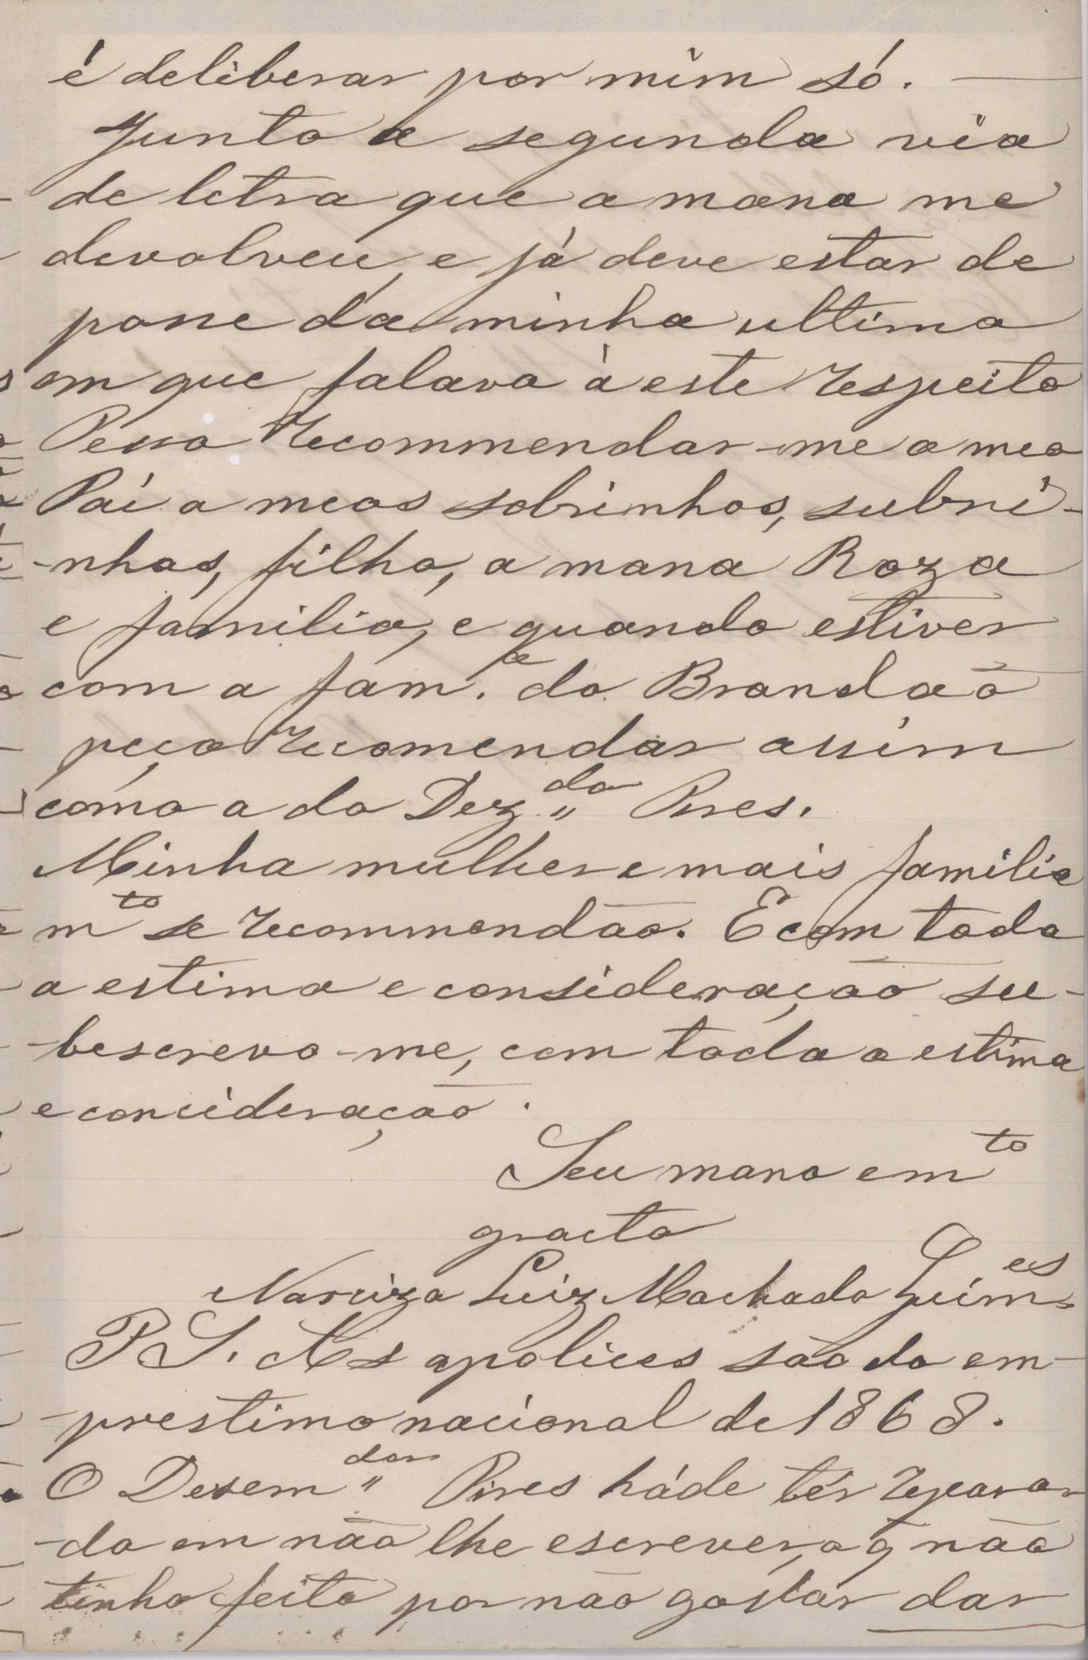 é deliberar por mim só. —
Junto a segunda via
de letra que a mana me
devolveu, e já deve estar de
posse da minha ultima
em que falava à este respeito
Pesso recommendar-me a meo
Pai a meos sobrinhos, subri-
-nhas, filho, a mana Roza
e familia, e quando estiver
com a fam.ª do Brandão
peço recomendar assim
como a do Dez.do Pires.
Minha mulher e mais familia
mto se recommendão. E com toda
a estima e consideração su-
-bescrevo-me, com toda a estima
e concideração.
Seu mano e mto
gracto
Narcizo Luiz Machado Guim.es
P S. As apolices são do em-
-prestimo nacional de 1868.
O Desem.dor Pires háde têr repara-
-do em não lhe escrever, o q̃ não
tinha feito por não gostar dar